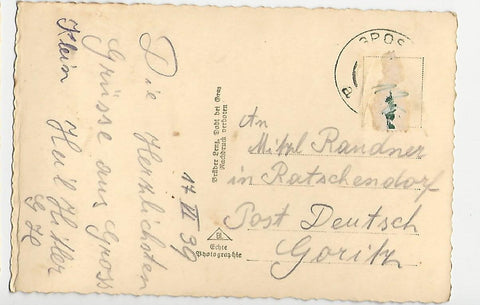 Die Herzlichsten
Grüsse aus Gross
Klein Heil Hitler
G H
17. VI 39
Brüder Lenz, Dobl bei Graz
Nachdruck verboten
BL
Echte
Photographie
GPOS
a
An
Mitzl Randner
in Ratschendorf
Post Deutsch
Goritz